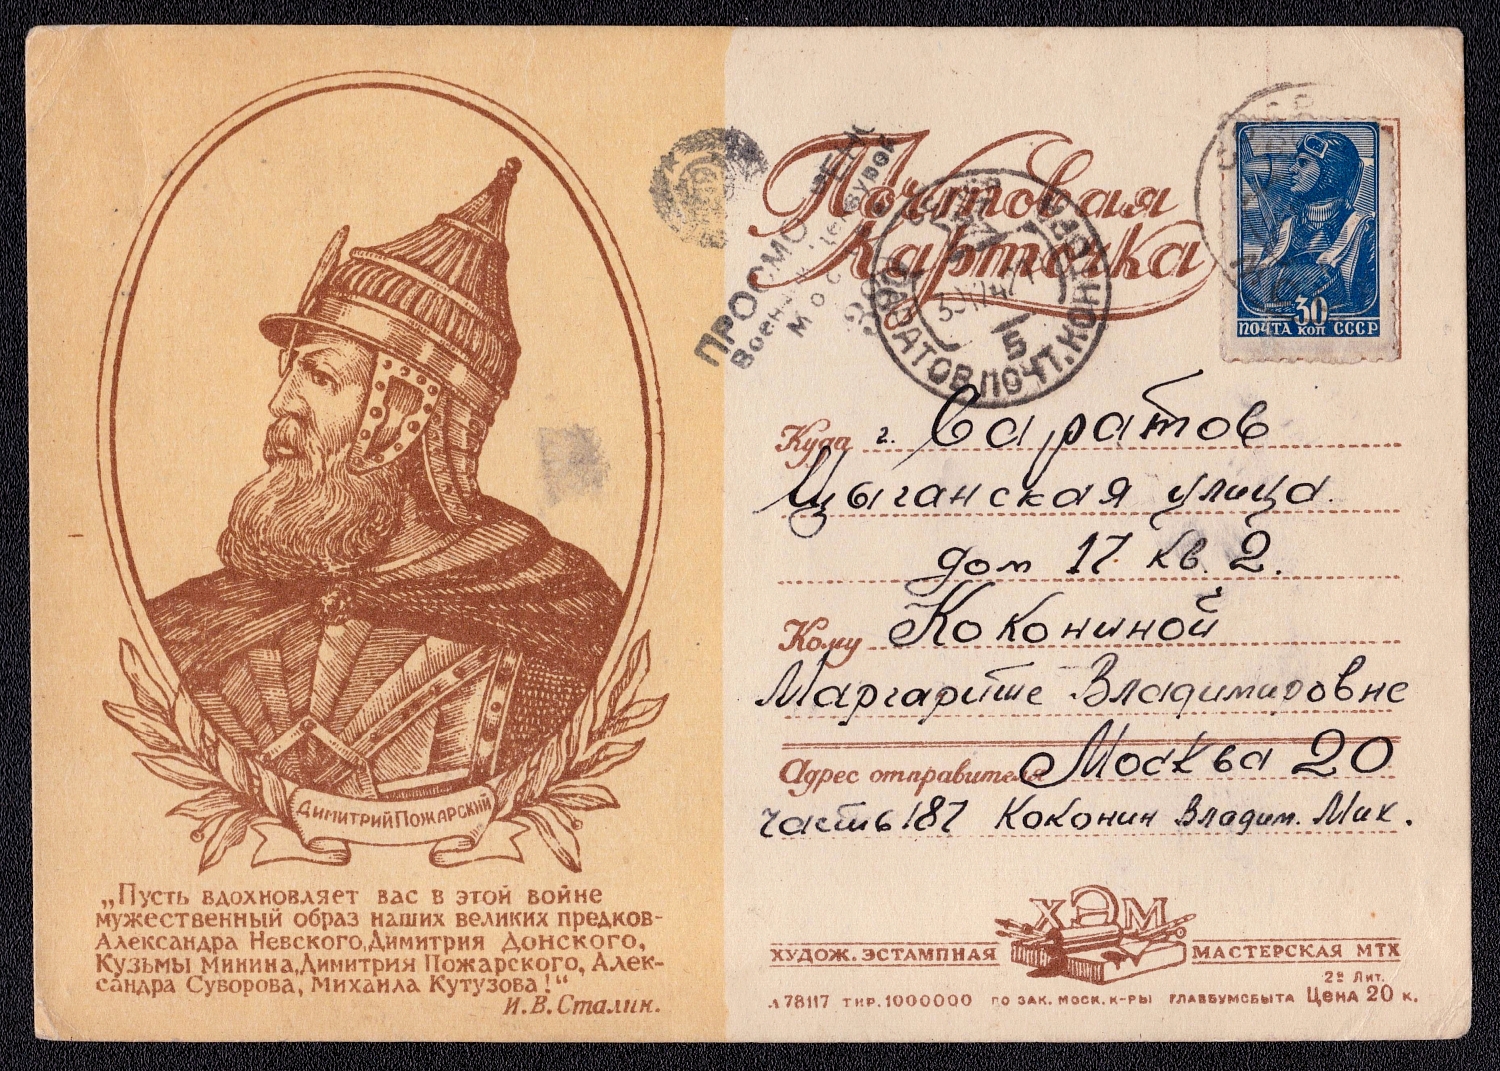 Димитрий Пожарский
„Пусть вдохновляет вас в этой войне
мужественный образ наших великих предков-
Александра Невского, Димитрия Донского,
Кузьмы Минина, Димитрия Пожарского, Алек-
сандра Суворова, Михаила Кутузова!“
И.В.Сталин.
Почтовая
Карточка
ПРОСМО
Военн
Мос
САРАТОВ.ПОЧТ.КОН
5
30
ПОЧТА КОП СССР
Куда г. Саратов
Цыганская улица.
дом 17 кв. 2.
Кому Кокониной
Маргарите Владимировне
Адрес отправителя Москва 20
часть 187 Коконин Владим. Мих.
ХЭМ
ХУДОЖ. ЭСТАМПНАЯ МАСТЕРСКАЯ МТХ
2ая Лит.
Л78117 ТИР. 1000000 ПО ЗАК. МОСК. К-РЫ ГЛАВБУМСБЫТА ЦЕНА 20 К.